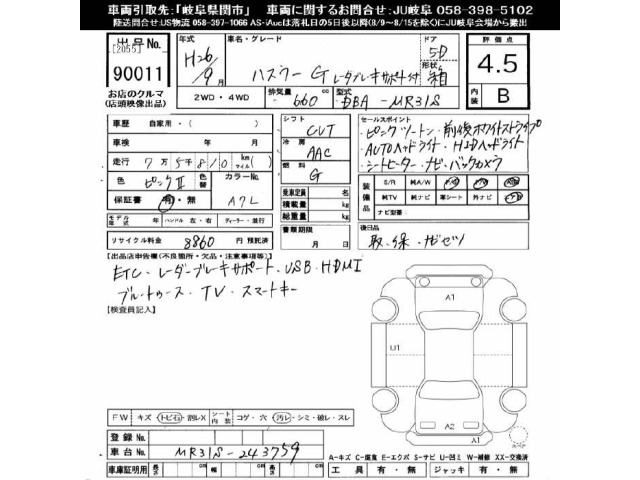 車両引取先:「岐阜県関市」 車両に関するお問合せ:JU岐阜 058-398-5102
陸送問合せ:US物流 058-397-1066 AS-iAucは落札日の5日後以降(8/9～8/15を除く)にJU岐阜会場から搬出
出品号 No. [2055] 90011
お店のクルマ (店頭映像出品)
年式 H26/9月
車名・グレード ハスラー G レーダブレーキサポート付
ドア 5D
形状 箱
評価点 4.5
内装 B
2WD・4WD
排気量 660 cc
型式 DBA-MR31S
車歴 自家用・( )
車検 年 月
走行 7万5千810 km マイル
色 ピンクII 色替 カラーNo. A7L
保証書 有・無
モデル年式 年 ハンドル 左・右 ディーラー・並行
リサイクル料金 8860 円 預託済
シフト CVT
冷房 AAC
燃料 G
乗車定員 名
積載量 kg
総重量 kg
書類期限 月 日
セールスポイント
・ピンクツートン・前後ホワイトストライプ
・AUTOヘッドライト・HIDヘッドライト
・シートヒーター・ナビ・バックカメラ
装備品 S/R 純A/W P/S P/W ABS
純TV 純ナビ 革シート 外ナビ エアB
ナビ型番
後日品
取・保・ナビセツ
【出品店申告欄(不良箇所・欠品・注意事項等)】
ETC・レーダーブレーキサポート・USB・HDMI
ブルートゥース・TV・スマートキー
【検査員記入】
A1
U1
A2
A1
スペア
FW キズ・トビ石・割レX
シート内装 コゲ・穴・汚レ・シミ・破レ・スレ
登録No.
車台No. MR31S-243759
車庫証明用 長さ cm 幅 cm 高さ cm
A-キズ C-腐食 E-エクボ S-サビ U-凹ミ W-補修 XX-交換済
工具 有・無 ジャッキ 有・無